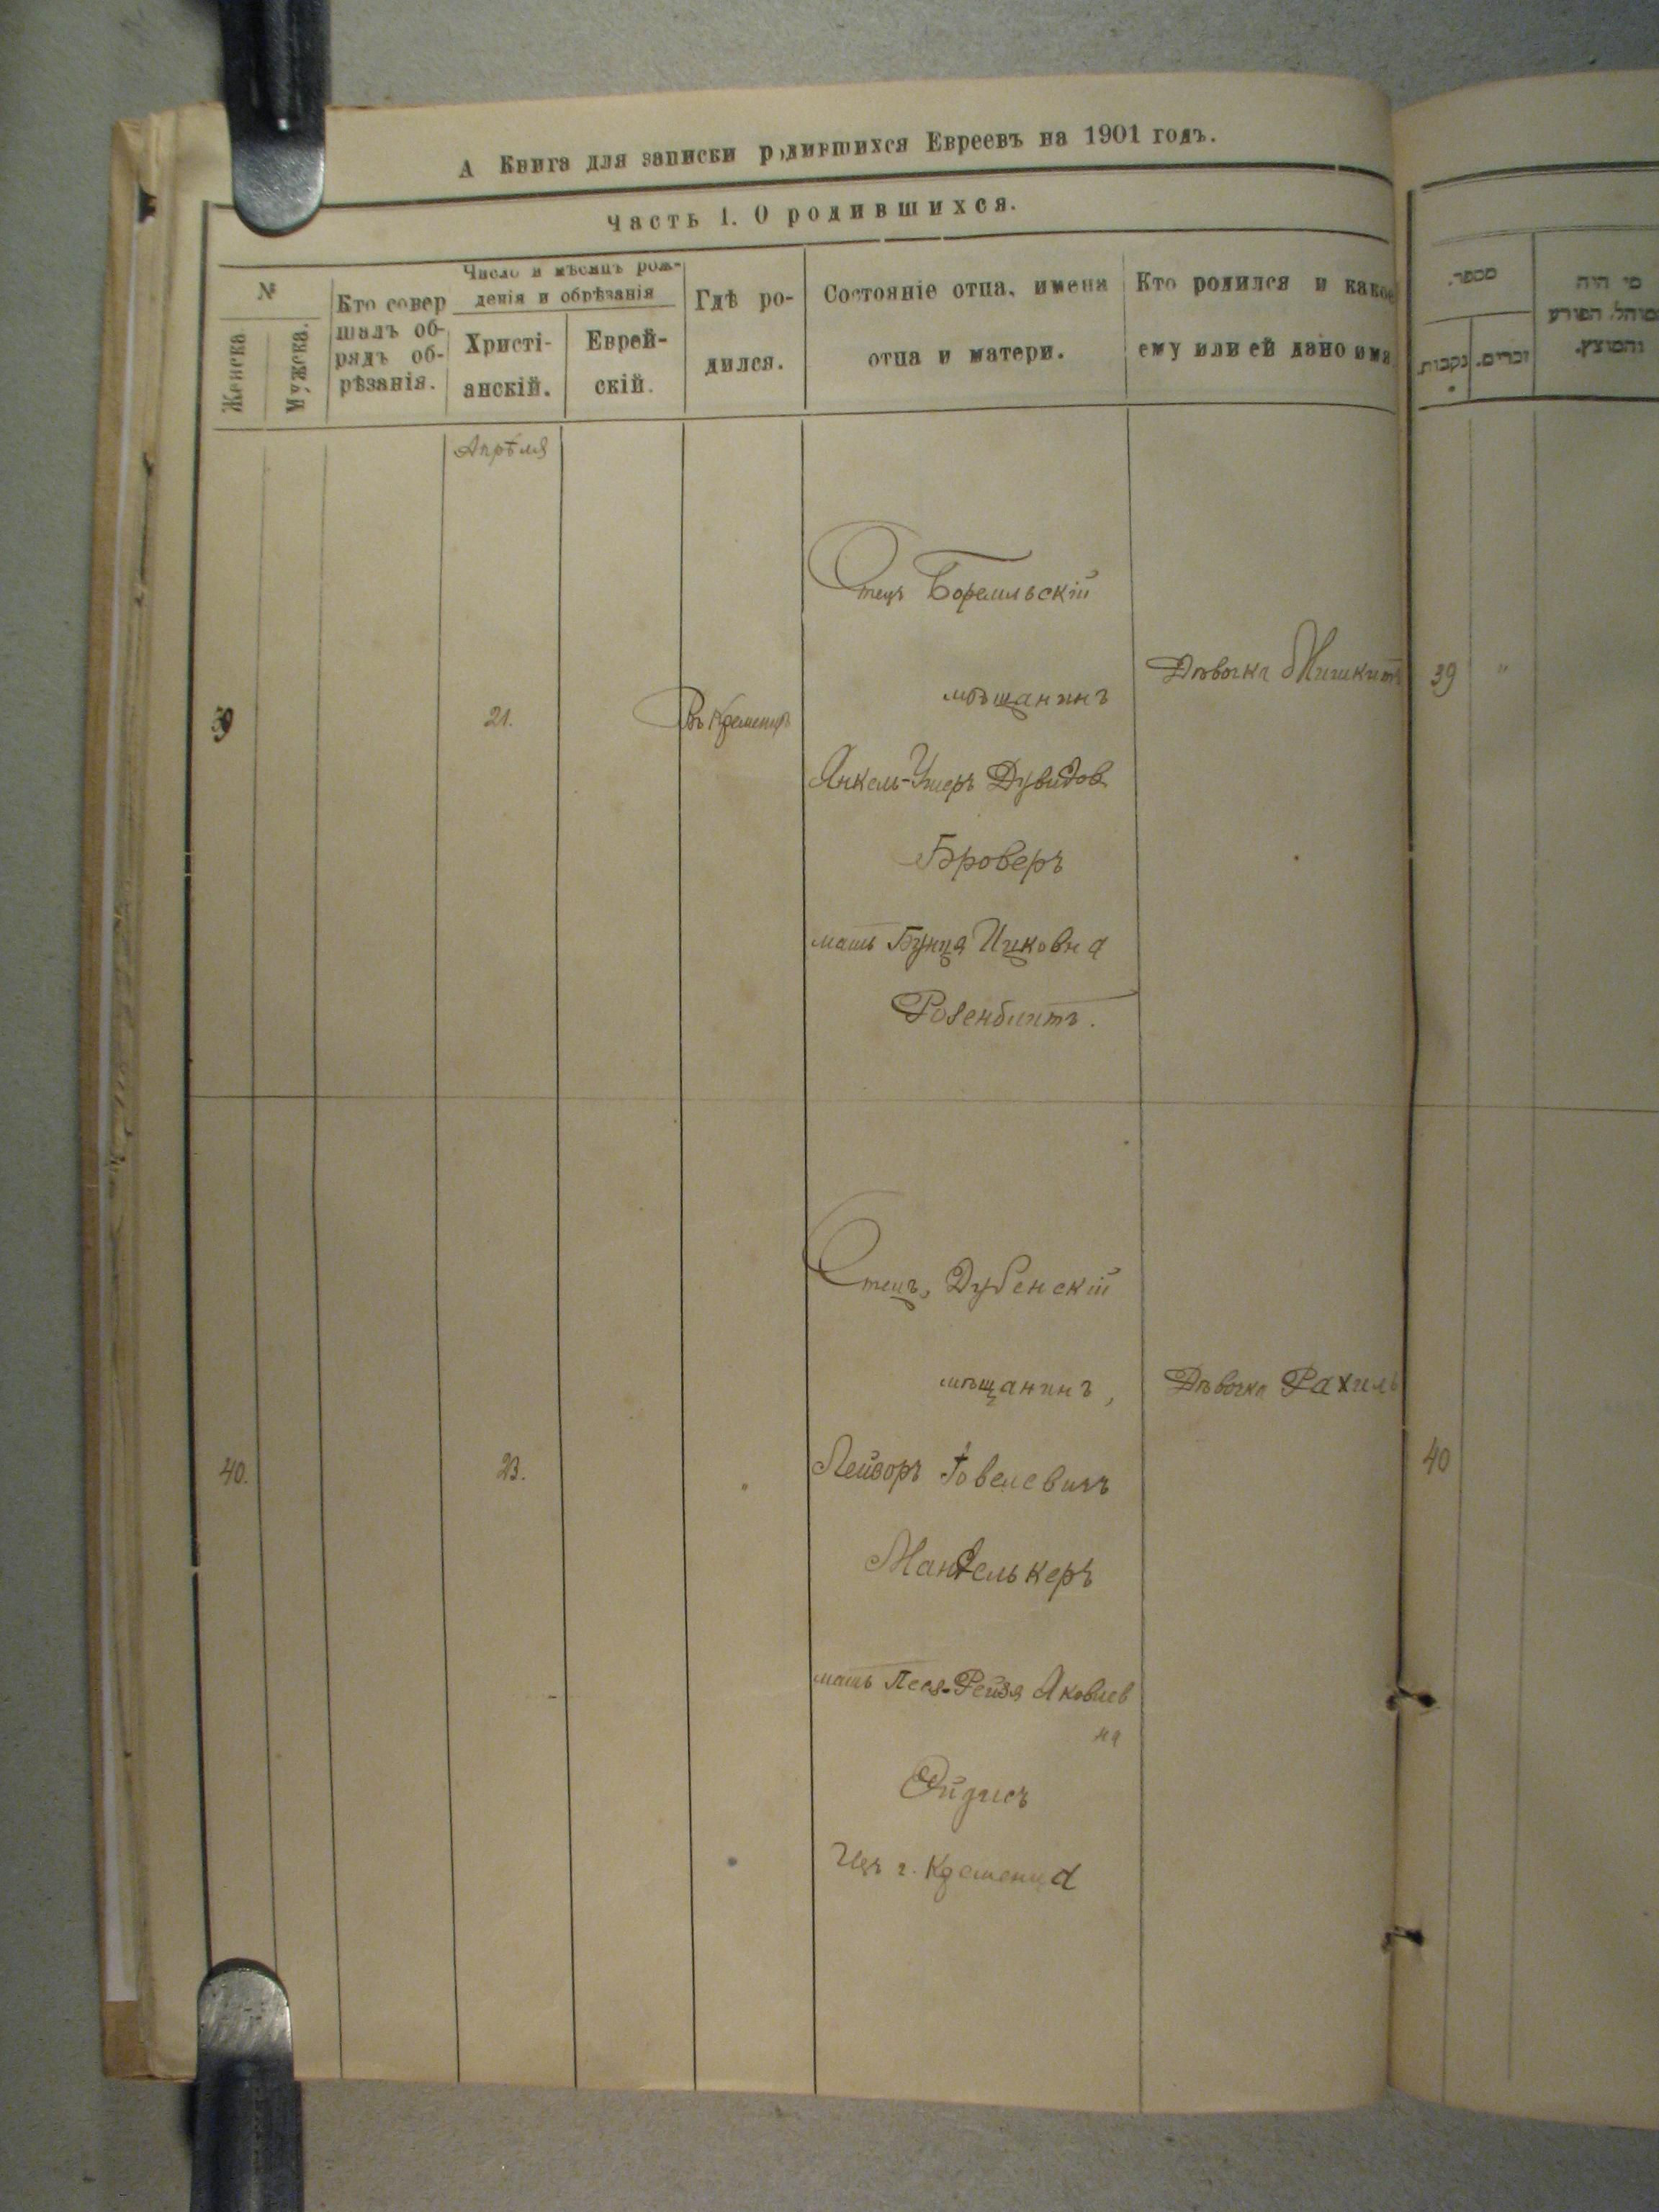 А Книга для записки родившихся Евреевъ на 1901 годъ.
Часть 1. О родившихся.
№
Женска
Мужска.
Кто совер
шалъ об-
рядъ об-
рѣзанія.
Число и мѣсяцъ рож-
денія и обрѣзанія
Христі-
анскій.
Еврей-
скій.
Гдѣ ро-
дился.
Состояніе отца, имена
отца и матери.
Кто родился и какое
ему или ей дано имя
מספר.
נקבות.
זכרים.
מי היה
המוהל, הפורע
והמוצץ.
Апрѣля
39
21.
Въ Кременцѣ
Отецъ Боремльскій
мѣщанинъ
Янкель-Ушеръ Дувидов
Броверъ
мать Бунця Ицковна
Розенблитъ.
Дѣвочка
39
"
40.
23.
Отецъ, Дубенскій
мѣщанинъ,
Лейзоръ Іовелевичъ
Манделькеръ
мать Песя-Рейзя Яковлев
на
Ойзисъ
Изъ г. Кременца
Дѣвочка Рахиль
40